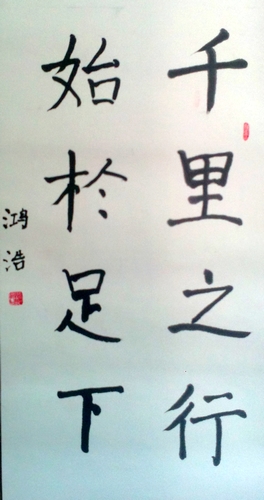 千里之行
始於足下
鸿浩